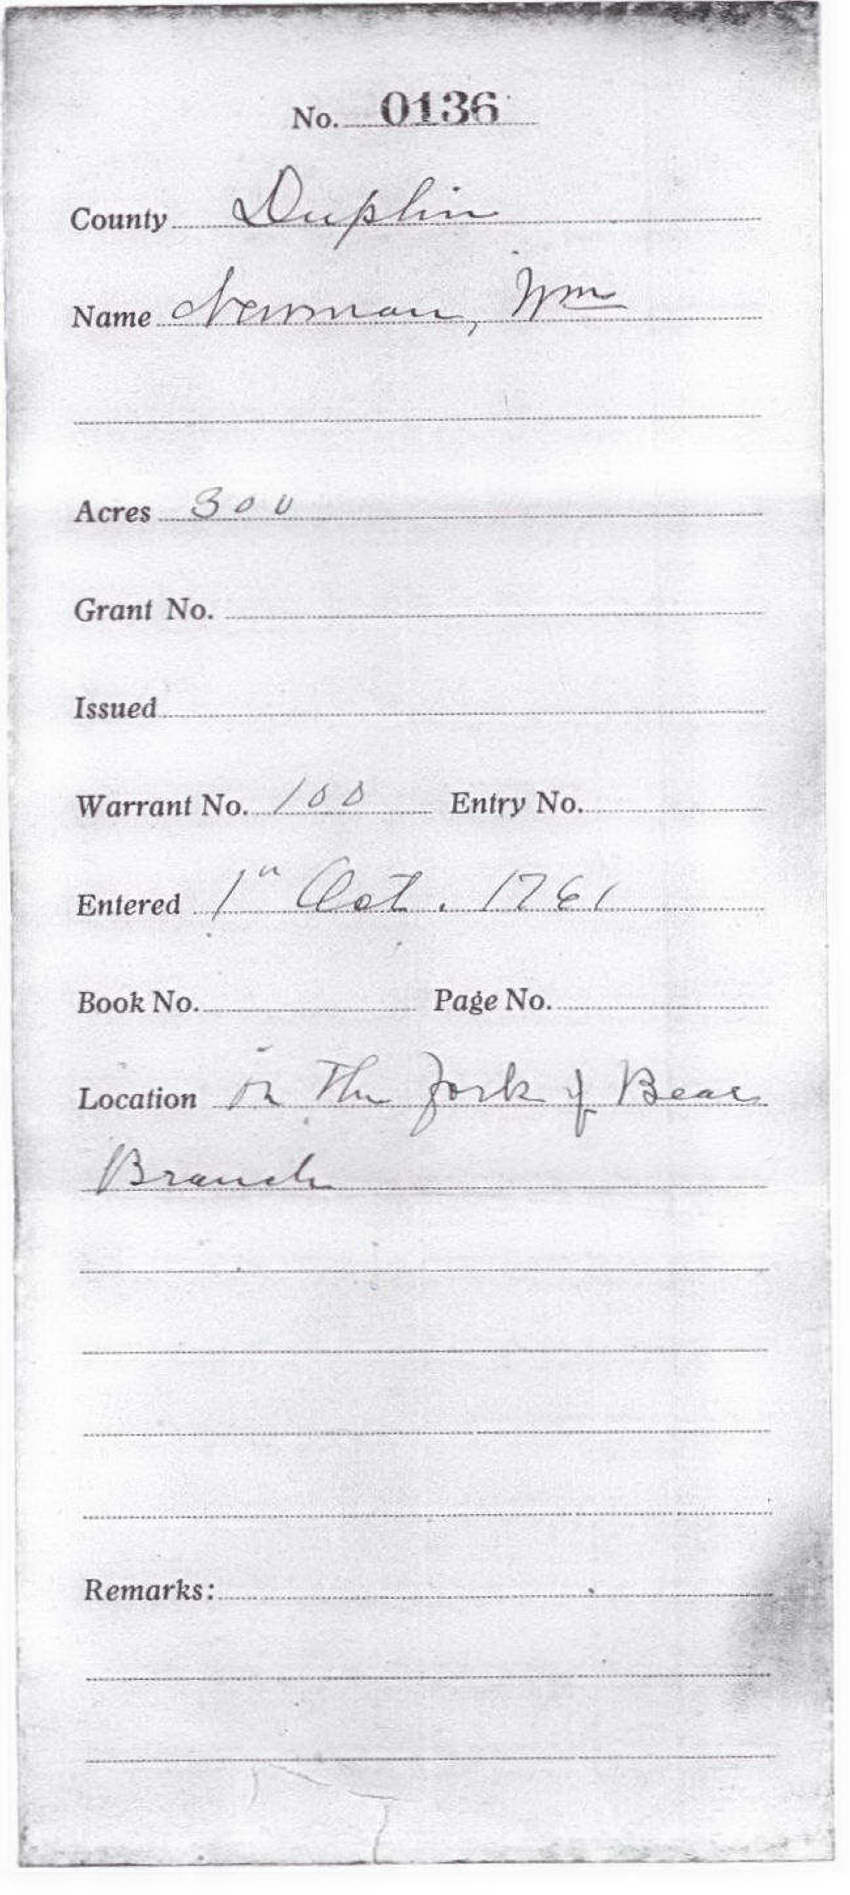 No. 0136
County Duplin
Name Newman, Wm
Acres 300
Grant No.
Issued
Warrant No. 100 Entry No.
Entered 1" Oct. 1761
Book No. Page No.
Location in The fork of Bear
Branch
Remarks: